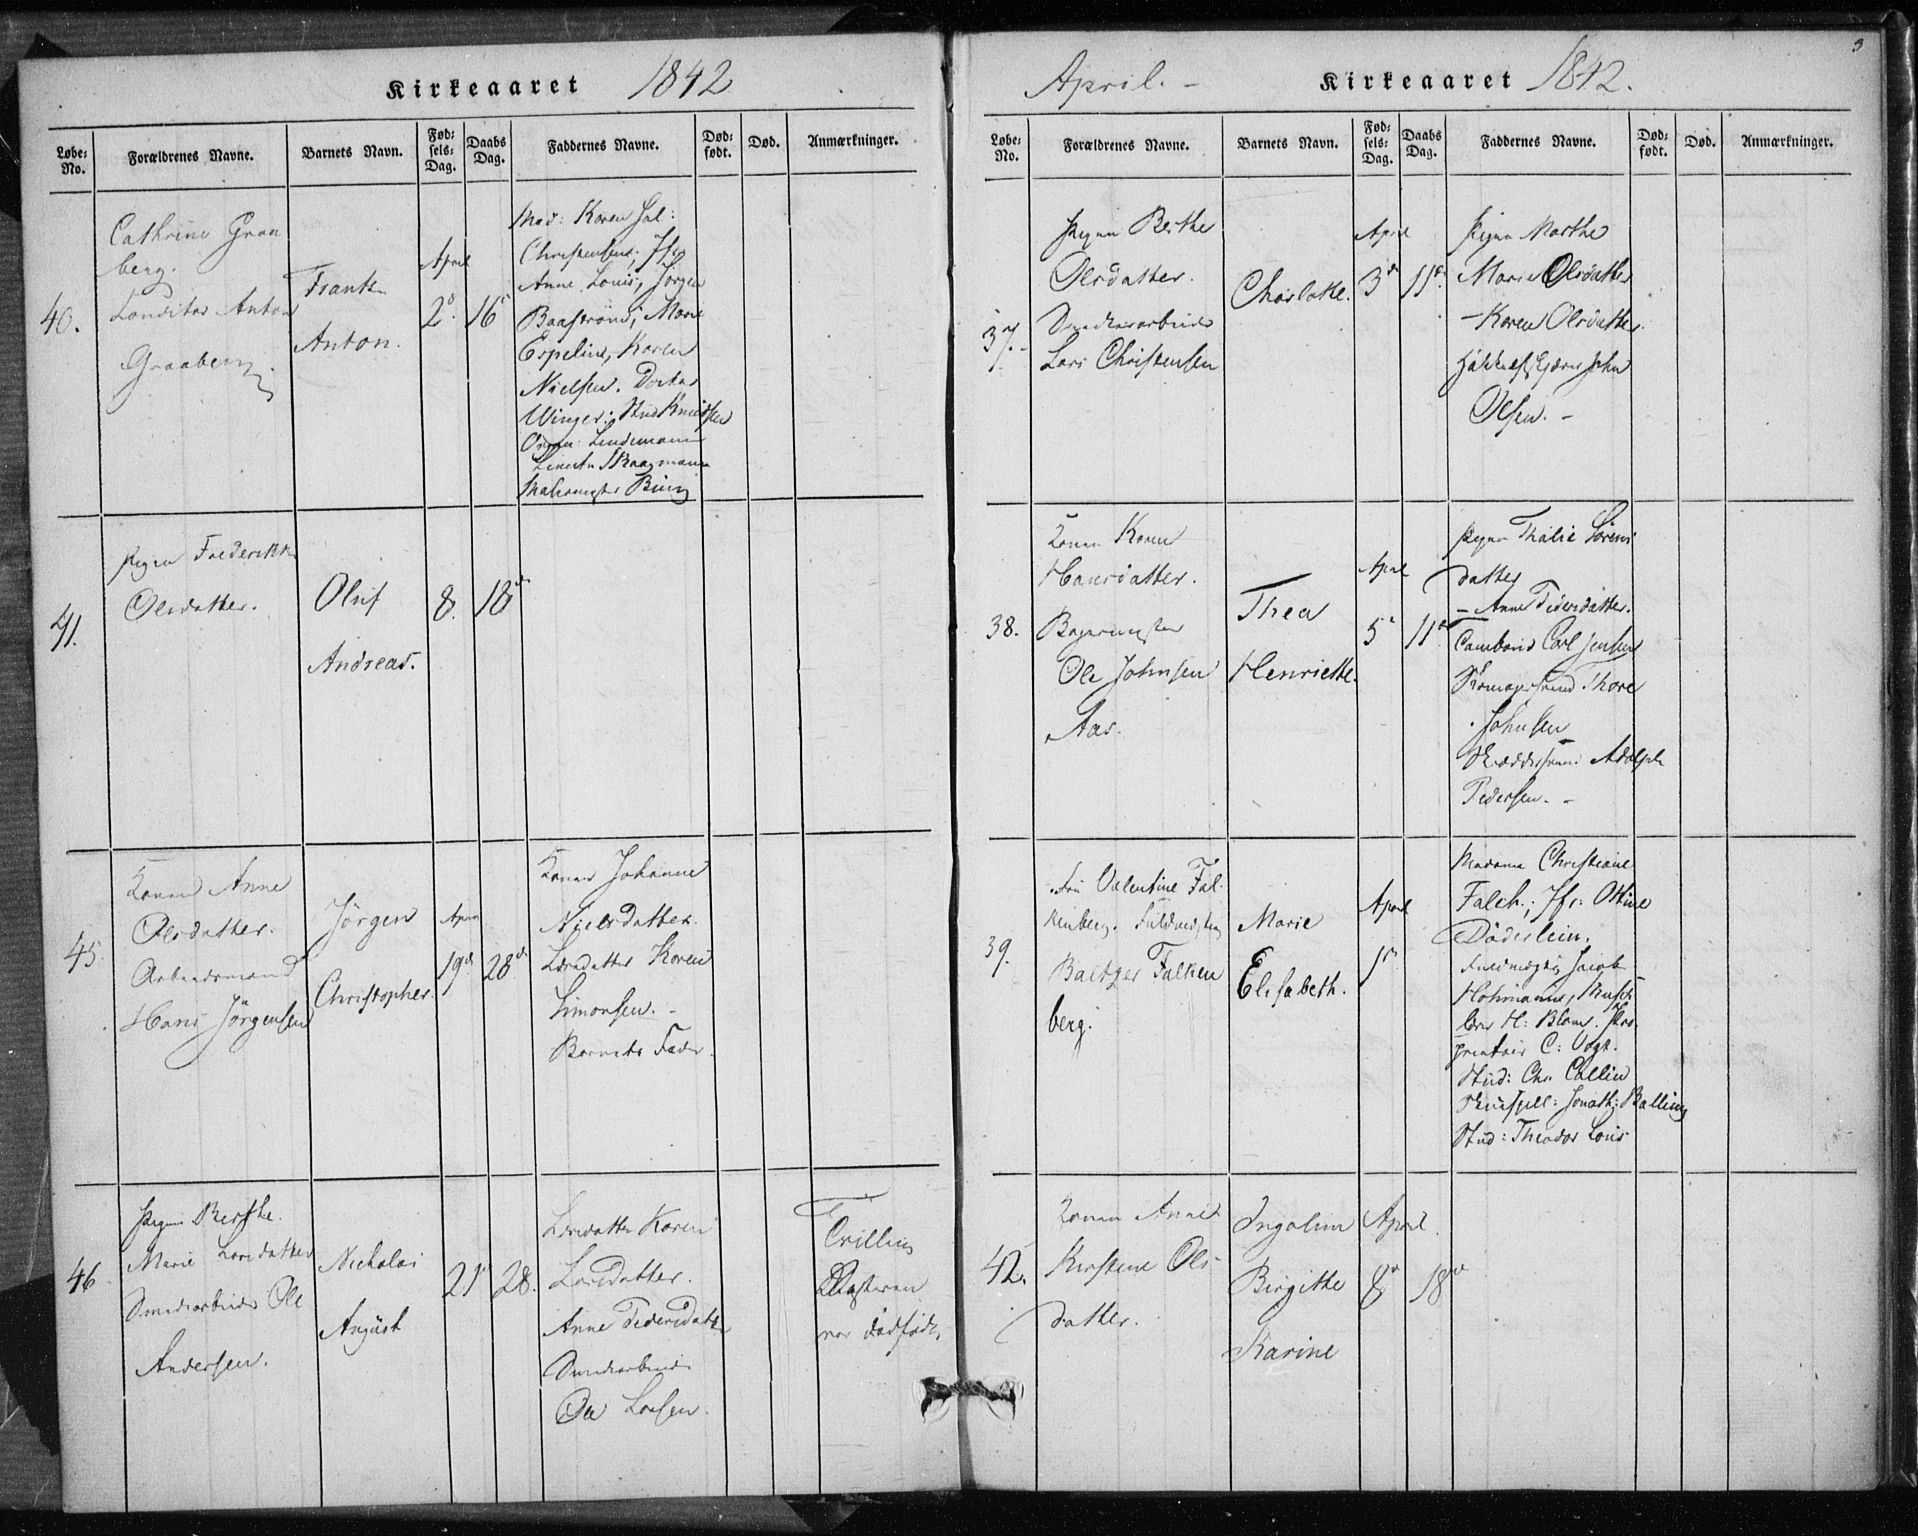 Kirkeaaret 1842
Løbe-No. Forældrenes Navne. Barnets Navn. Fødsels-Dag. Daabs Dag. Faddernes Navne. Dødfødt. Død. Anmærkninger.
40.
Cathrine Graa
berg.
Conditor Anton
Graaberg
Frantz
Anton.
April
2d. 16d
Mad: Karen Sal:
Christensens; Jfr
Anne Louis, Jörgen
Baaströnd; Marie
Espelin, Karen
Nielsen. Doctor
Winger; Stud Knudsen
Organ: Lindemann
Bing
41.
Pigen Frederikke
Olsdatter.
Oluf
Andreas.
8. 18d
45.
Konen Anne
Olsdatter.
Arbeidsmand
Hans Jörgensen
Jörgen
Christopher.
April
19d 28d
Konen Johanne
Nielsdatter.
Karen
Simonsen. -
Barnets Fader.
46
Pigen Berthe
Marie Larsdatter
Ole
Andersen.
Nicholai
August
21d 28.
Karen
Larsdatter.
Anne Pedersdatter
Ole Larsen.
Tvilling
var dødfødt.
April. - Kirkeaaret 1842.
3
Løbe-No. Forældrenes Navne. Barnets Navn. Fødsels-Dag. Daabs Dag. Faddernes Navne. Dødfødt. Død. Anmærkninger.
37. -
Pigen Berthe
Olsdatter.
Lars Christensen
Charlotte.
April
3d 11d.
Pigen Marthe
Marie Olsdatter
- Karen Olsdatter.
John
Olsen. -
38.
Konen Karen
Hansdatter.
Bagermester
Ole Johnsen
Aas.
Thea
Henriette.
April
5d 11d
Pigen Thalie Sörens
datter
- Anne Pedersdatter.
Tambour Carl Jensen
Skomagersvend Thore
Johnsen
Skræddersvend Adolph
Pedersen. -
39.
Fru Valentine Fal
kenberg. Fuldmægtig
Baltzer Falken
berg.
Marie
Elisabeth.
April
1d
Madame Christiane
Falch; Jfr: Ottine
Döderlein.
Fuldmægtig Jacob
Hohmann, Musik
lærer H: Blom. Pro
prietair C: Vogt.
Stud: Chr Collin
Skuespill: Jonath: Balling
Stud: Theodor Louis
42.
Konen Anne
Kirstine Ols
datter.
Ingoline
Birgitte
Karine
April.
8d 18d